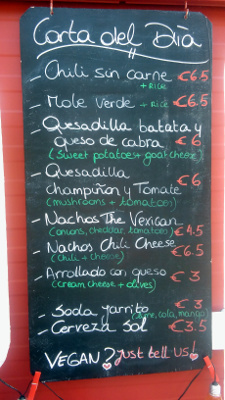 Carta del Dia
- Chili sin carne €6.5
+ RICE
- Mole verde + RICE €6.5
- Quesadilla batata y
queso de cabra €6
(Sweet potatoes + goat cheese)
- Quesadilla €6
champiñon y Tomate
(mushrooms + tomatoes)
- Nachos The Vexican
(onions, cheddar, tomatoes) €4.5
- Nachos Chili Cheese €6.5
(chili + cheese)
- Arrollado con queso €3
(cream cheese + olives)
- Soda Jarrito €3
cola, mango)
- Cerveza Sol €3.5
VEGAN? Just tell us!